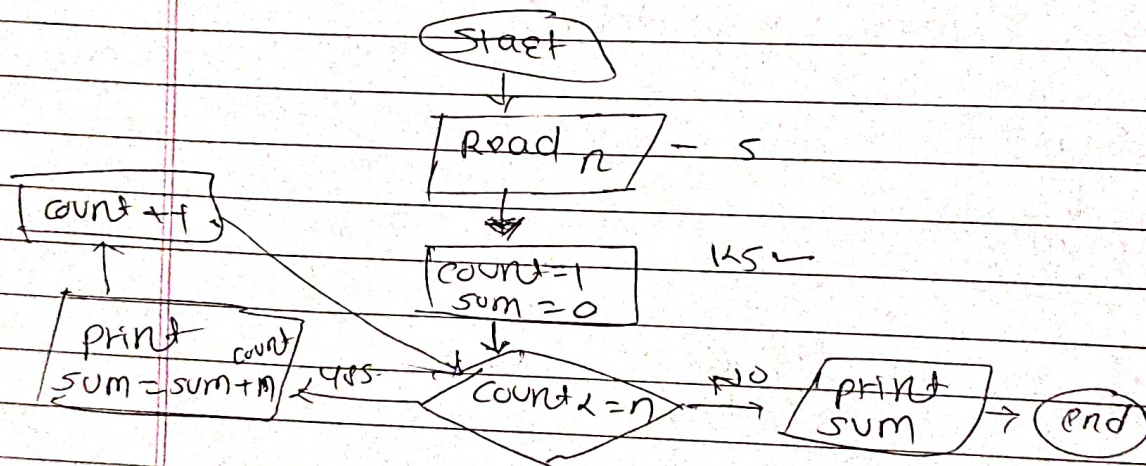 Start
Read n - 5
count ++
count=1
sum = 0
1<5
print count
sum = sum+n
yes
count <= n
NO
print
sum
end